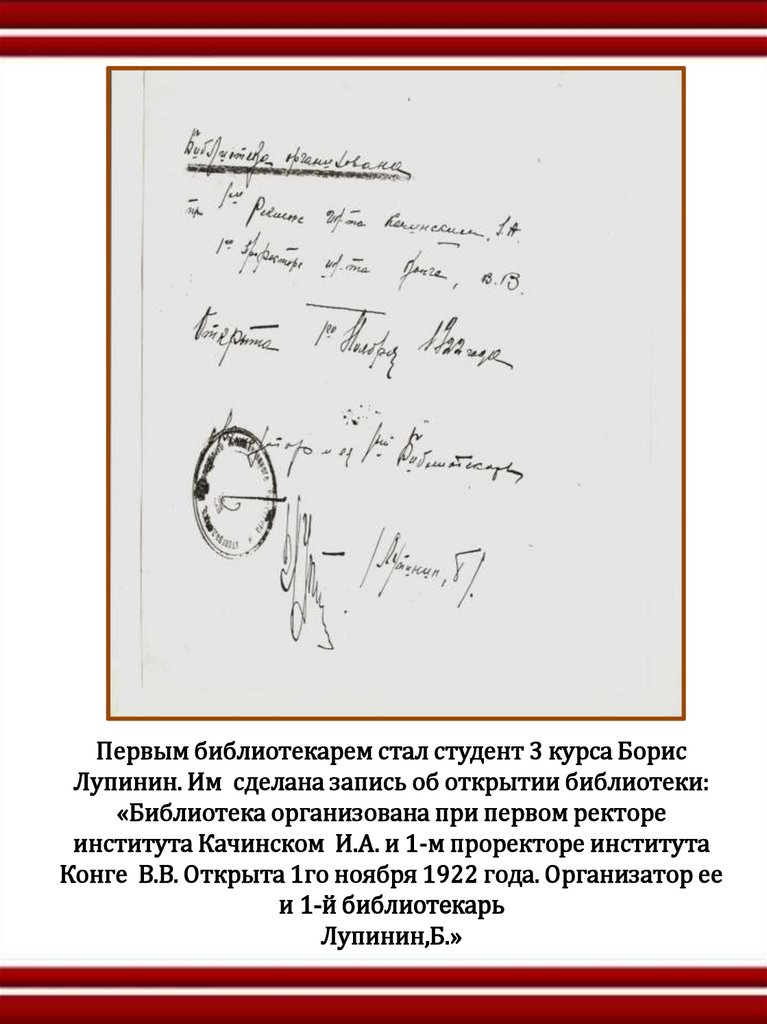 Библиотека организована
при 1м Ректоре ин-та Качинским, I.А.
1м проректоре ин-та Конге, В.В.
Открыта 1го Ноября 1922 года
1ый Библиотекарь
/Лупинин, Б/.
Первым библиотекарем стал студент 3 курса Борис
Лупинин. Им сделана запись об открытии библиотеки:
«Библиотека организована при первом ректоре
института Качинском И.А. и 1-м проректоре института
Конге В.В. Открыта 1го ноября 1922 года. Организатор ее
и 1-й библиотекарь
Лупинин,Б.»